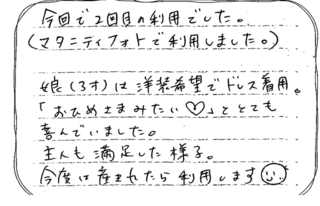 今回で2回目の利用でした。
(マタニティフォトで利用しました。)
娘(3才)は洋装希望でドレス着用。
「おひめさまみたい♡」ととても
喜んでいました。
主人も満足した様子。
今度は産まれたら利用します☺